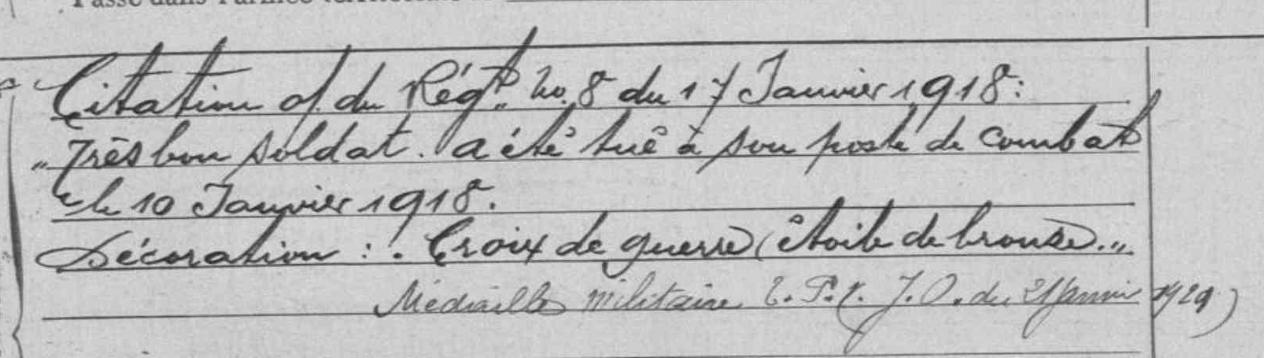 Passé dans l'armée territoriale
Citation O/ du Régt. No. 8 du 17 Janvier 1918:
"Très bon soldat. a été tué à son poste de combat
le 10 Janvier 1918.
Décoration : . Croix de guerre (étoile de bronze..."
Médaille militaire J.O. du Janvier 1929)